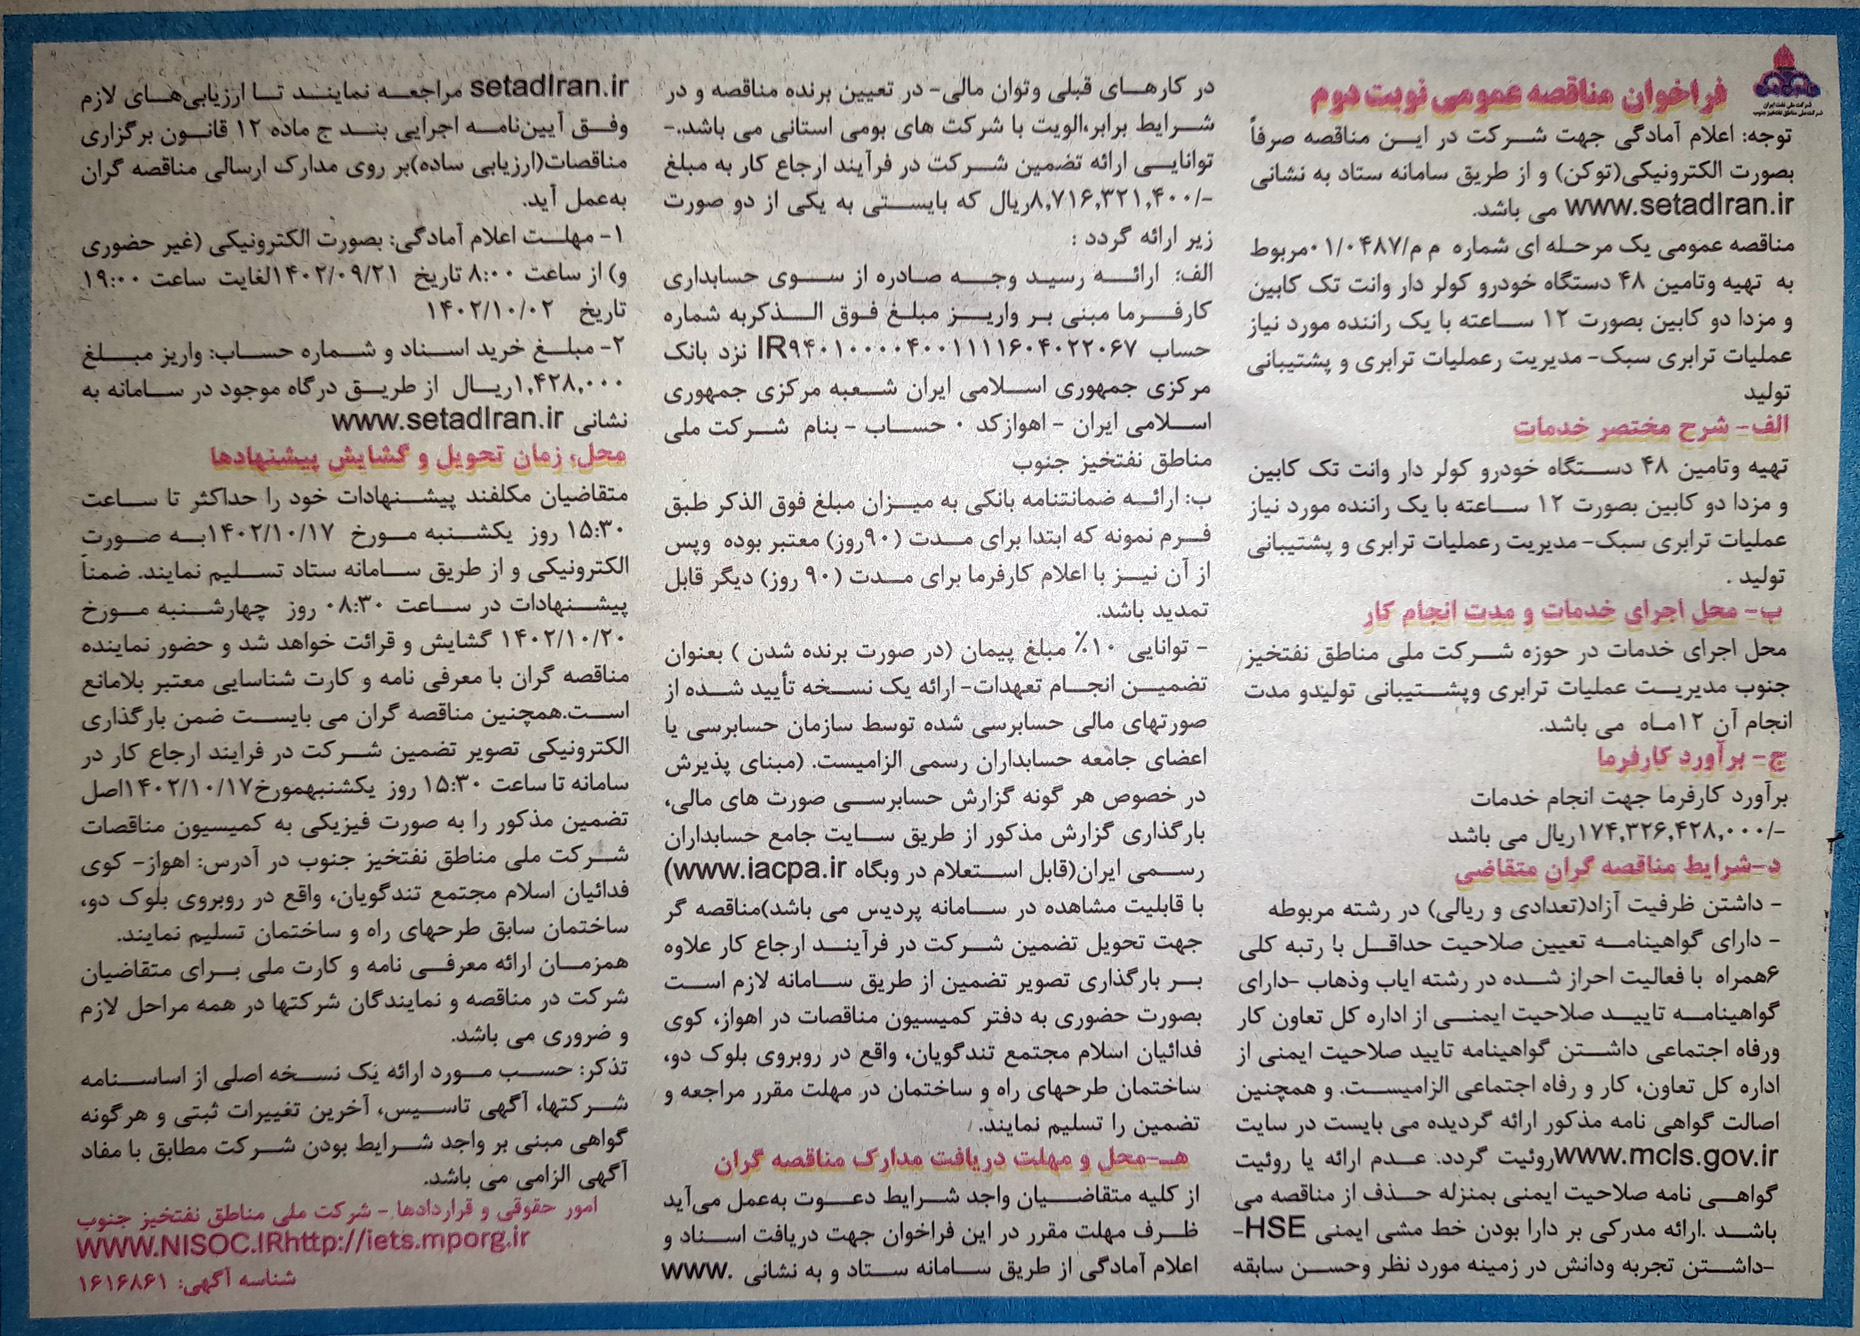 شرکت ملی نفت ایران
شرکت ملی مناطق نفتخیز جنوب
فراخوان مناقصه عمومی نوبت دوم
توجه: اعلام آمادگی جهت شرکت در این مناقصه صرفاً
بصورت الکترونیکی(توکن) و از طریق سامانه ستاد به نشانی
www.setadIran.ir می باشد.
مناقصه عمومی یک مرحله ای شماره م م/۰۱/۰۴۸۷مربوط
به تهیه وتامین ۴۸ دستگاه خودرو کولر دار وانت تک کابین
و مزدا دو کابین بصورت ۱۲ ساعته با یک راننده مورد نیاز
عملیات ترابری سبک- مدیریت رعملیات ترابری و پشتیبانی
تولید
الف- شرح مختصر خدمات
تهیه وتامین ۴۸ دستگاه خودرو کولر دار وانت تک کابین
و مزدا دو کابین بصورت ۱۲ ساعته با یک راننده مورد نیاز
عملیات ترابری سبک- مدیریت رعملیات ترابری و پشتیبانی
تولید .
ب- محل اجرای خدمات و مدت انجام کار
محل اجرای خدمات در حوزه شرکت ملی مناطق نفتخیز
جنوب مدیریت عملیات ترابری وپشتیبانی تولیدو مدت
انجام آن ۱۲ماه می باشد.
ج- برآورد کارفرما
برآورد کارفرما جهت انجام خدمات
-/۱۷۴,۳۲۶,۴۲۸,۰۰۰ریال می باشد
د-شرایط مناقصه گران متقاضی
- داشتن ظرفیت آزاد(تعدادی و ریالی) در رشته مربوطه
- دارای گواهینامه تعیین صلاحیت حداقل با رتبه کلی
۶همراه با فعالیت احراز شده در رشته ایاب وذهاب -دارای
گواهینامه تایید صلاحیت ایمنی از اداره کل تعاون کار
ورفاه اجتماعی داشتن گواهینامه تایید صلاحیت ایمنی از
اداره کل تعاون، کار و رفاه اجتماعی الزامیست. و همچنین
اصالت گواهی نامه مذکور ارائه گردیده می بایست در سایت
www.mcls.gov.irروئیت گردد. عدم ارائه یا روئیت
گواهی نامه صلاحیت ایمنی بمنزله حذف از مناقصه می
باشد .ارائه مدرکی بر دارا بودن خط مشی ایمنی HSE-
-داشتن تجربه ودانش در زمینه مورد نظر وحسن سابقه
در کارهای قبلی وتوان مالی- در تعیین برنده مناقصه و در
شرایط برابر،الویت با شرکت های بومی استانی می باشد.-
توانایی ارائه تضمین شرکت در فرآیند ارجاع کار به مبلغ
-/۸,۷۱۶,۳۲۱,۴۰۰ریال که بایستی به یکی از دو صورت
زیر ارائه گردد :
الف: ارائه رسید وجه صادره از سوی حسابداری
کارفرما مبنی بر واریز مبلغ فوق الذکربه شماره
حساب IR۹۴۰۱۰۰۰۰۴۰۰۱۱۱۱۶۰۴۰۲۲۰۶۷ نزد بانک
مرکزی جمهوری اسلامی ایران شعبه مرکزی جمهوری
اسلامی ایران - اهوازکد ۰ حساب - بنام شرکت ملی
مناطق نفتخیز جنوب
ب: ارائه ضمانتنامه بانکی به میزان مبلغ فوق الذکر طبق
فرم نمونه که ابتدا برای مدت (۹۰روز) معتبر بوده وپس
از آن نیز با اعلام کارفرما برای مدت (۹۰ روز) دیگر قابل
تمدید باشد.
- توانایی ۱۰٪ مبلغ پیمان (در صورت برنده شدن ) بعنوان
تضمین انجام تعهدات- ارائه یک نسخه تأیید شده از
صورتهای مالی حسابرسی شده توسط سازمان حسابرسی یا
اعضای جامعه حسابداران رسمی الزامیست. (مبنای پذیرش
در خصوص هر گونه گزارش حسابرسی صورت های مالی،
بارگذاری گزارش مذکور از طریق سایت جامع حسابداران
رسمی ایران(قابل استعلام در وبگاه www.iacpa.ir)
با قابلیت مشاهده در سامانه پردیس می باشد)مناقصه گر
جهت تحویل تضمین شرکت در فرآیند ارجاع کار علاوه
بر بارگذاری تصویر تضمین از طریق سامانه لازم است
بصورت حضوری به دفتر کمیسیون مناقصات در اهواز، کوی
فدائیان اسلام مجتمع تندگویان، واقع در روبروی بلوک دو،
ساختمان طرحهای راه و ساختمان در مهلت مقرر مراجعه و
تضمین را تسلیم نمایند.
هـ-محل و مهلت دریافت مدارک مناقصه گران
از کلیه متقاضیان واجد شرایط دعوت به‌عمل می‌آید
ظرف مهلت مقرر در این فراخوان جهت دریافت اسناد و
اعلام آمادگی از طریق سامانه ستاد و به نشانی www.
setadIran.ir مراجعه نمایند تا ارزیابی‌های لازم
وفق آیین‌نامه اجرایی بند ج ماده ۱۲ قانون برگزاری
مناقصات(ارزیابی ساده)بر روی مدارک ارسالی مناقصه گران
به‌عمل آید.
۱- مهلت اعلام آمادگی: بصورت الکترونیکی (غیر حضوری
و) از ساعت ۸:۰۰ تاریخ ۱۴۰۲/۰۹/۲۱لغایت ساعت ۱۹:۰۰
تاریخ ۱۴۰۲/۱۰/۰۲
۲- مبلغ خرید اسناد و شماره حساب: واریز مبلغ
۱,۴۲۸,۰۰۰ریال از طریق درگاه موجود در سامانه به
نشانی www.setadIran.ir
محل، زمان تحویل و گشایش پیشنهادها
متقاضیان مکلفند پیشنهادات خود را حداکثر تا ساعت
۱۵:۳۰ روز یکشنبه مورخ ۱۴۰۲/۱۰/۱۷به صورت
الکترونیکی و از طریق سامانه ستاد تسلیم نمایند. ضمناً
پیشنهادات در ساعت ۰۸:۳۰ روز چهارشنبه مورخ
۱۴۰۲/۱۰/۲۰ گشایش و قرائت خواهد شد و حضور نماینده
مناقصه گران با معرفی نامه و کارت شناسایی معتبر بلامانع
است.همچنین مناقصه گران می بایست ضمن بارگذاری
الکترونیکی تصویر تضمین شرکت در فرایند ارجاع کار در
سامانه تا ساعت ۱۵:۳۰ روز یکشنبهمورخ۱۴۰۲/۱۰/۱۷اصل
تضمین مذکور را به صورت فیزیکی به کمیسیون مناقصات
شرکت ملی مناطق نفتخیز جنوب در آدرس: اهواز- کوی
فدائیان اسلام مجتمع تندگویان، واقع در روبروی بلوک دو،
ساختمان سابق طرحهای راه و ساختمان تسلیم نمایند.
همزمان ارائه معرفی نامه و کارت ملی برای متقاضیان
شرکت در مناقصه و نمایندگان شرکتها در همه مراحل لازم
و ضروری می باشد.
تذکر: حسب مورد ارائه یک نسخه اصلی از اساسنامه
شرکتها، آگهی تاسیس، آخرین تغییرات ثبتی و هرگونه
گواهی مبنی بر واجد شرایط بودن شرکت مطابق با مفاد
آگهی الزامی می باشد.
امور حقوقی و قراردادها - شرکت ملی مناطق نفتخیز جنوب
WWW.NISOC.IRhttp://iets.mporg.ir
شناسه آگهی: ۱۶۱۶۸۶۱